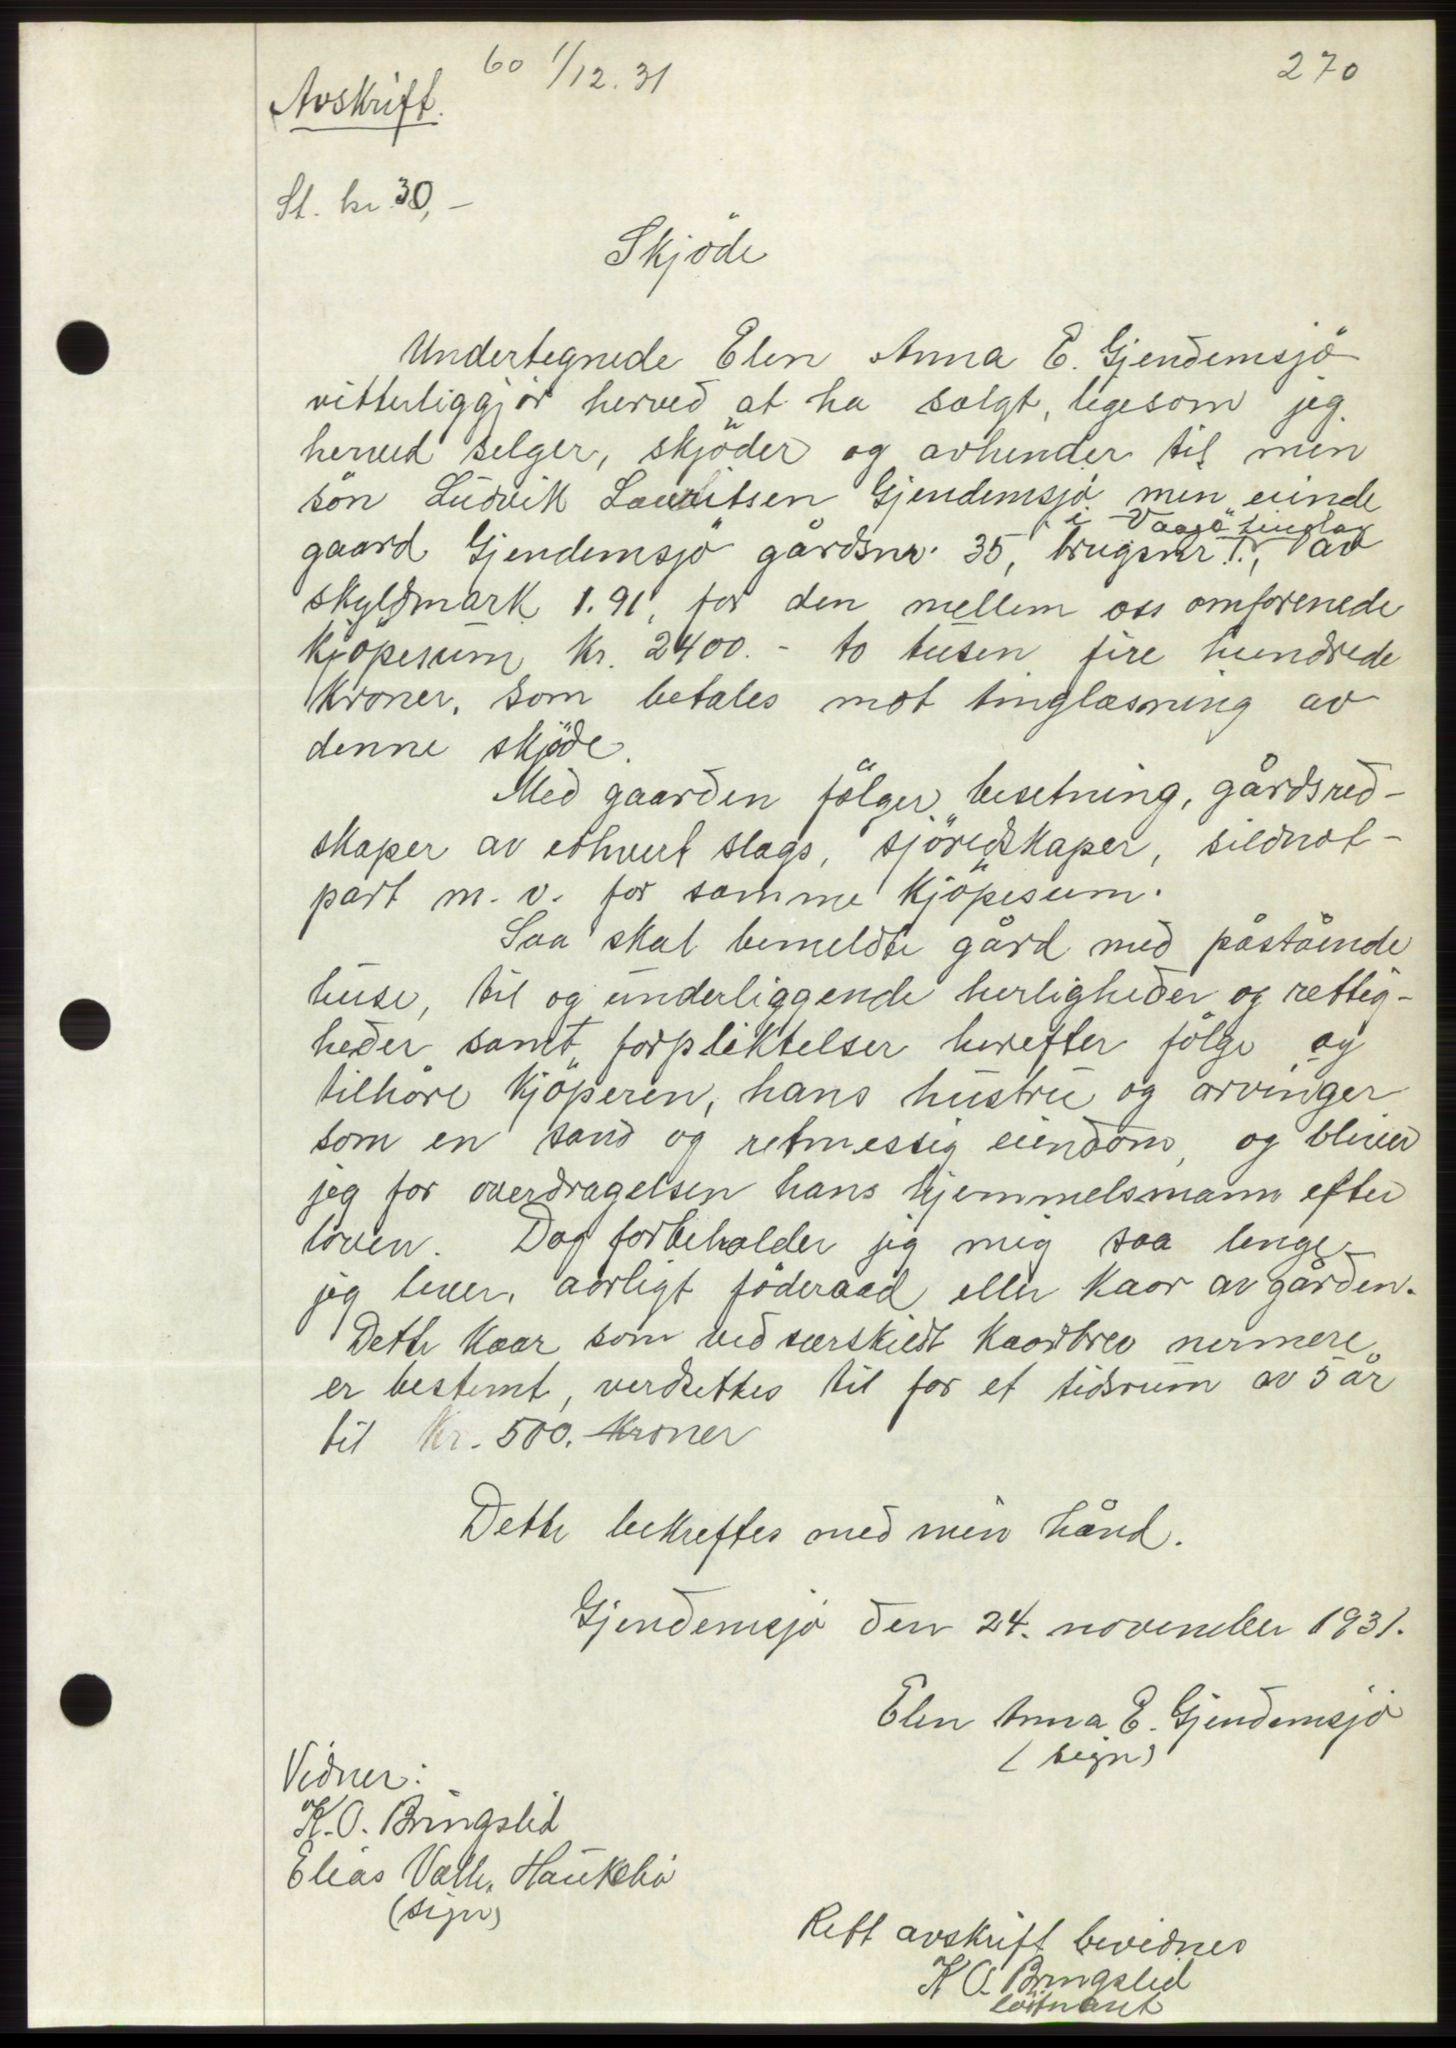 60 1/12. 31
270
Avskrift.
St. kr. 30,-
Skjöde
Undertegnede Elen Anna E. Gjendemsjö
vitterliggjör herved at ha solgt, ligesom jeg
herved selger, skjöder og avhender til min
sön Ludvik Lauritsen Gjendemsjö min eiende
i Vaagö tinglag
gaard Gjendemsjö gårdsnr. 35, brugsnr 1., av
skyldmark 1.91, for den mellem oss omforenede
kjöpesum kr. 2400.- to tusen fire hundrede
kroner, som betales mot tinglæsning av
denne skjöde.
Med gaarden fölger besetning, gårdsred-
skaper av ethvert slags, sjöredskaper, sildnot-
part m. v. for samme kjöpesum.
Saa skal bemeldte gård med påstående
huse, til og underliggende herligheder og rettig-
heder samt forpliktelser herefter fölge og
tilhöre kjöperen, hans hustru og arvinger
som en sand og retmessig eiendom, og bliver
jeg for overdragelsen hans hjemmelsmann efter
loven. Dog forbeholder jeg mig saa lenge
jeg lever, aarligt föderaad eller kaar av gården.
Dette kaar som ved særskildt kaarbrev nermere
er bestemt, verdsettes til for et tidsrum av 5 år
til kr. 500. kroner
Dette bekreftes med min hånd.
Gjendemsjö den 24. november 1931.
Elen Anna E. Gjendemsjö
(sign)
Vidner:
K. O. Bringslid
Elias Valb. Haukebö
(sign)
Rett avskrift bevidnes
K O. Bringslid
löitnant